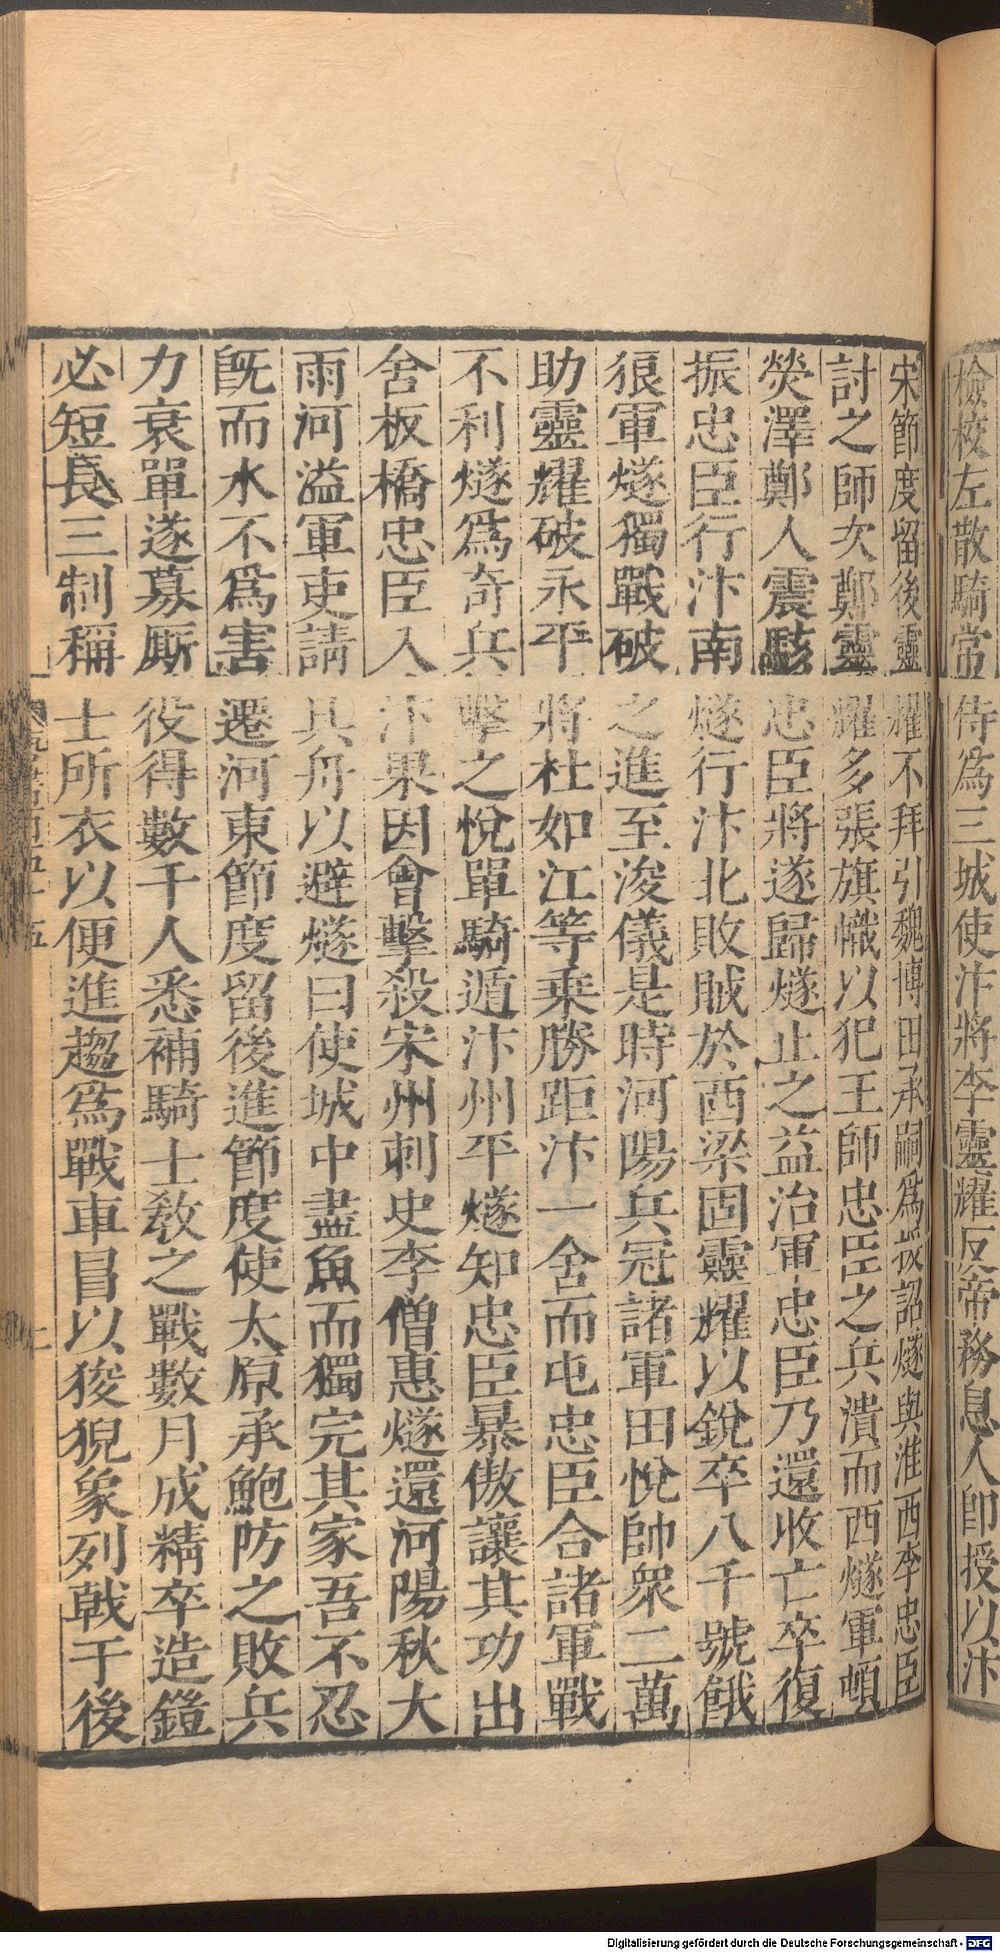 檢校左散騎常侍爲三城使汴將李靈耀反帝務息人卽授以汴
宋節度留後靈耀不拜引魏博田承嗣爲援詔燧與淮西李忠臣
討之師次鄭靈耀多張旗幟以犯王師忠臣之兵潰而西燧軍頓
熒澤鄭人震駭忠臣將遂歸燧止之益治軍忠臣乃還收亡卒復
振忠臣行汴南燧行汴北敗賊於西梁固靈耀以銳卒八千號餓
狼軍燧獨戰破之進至浚儀是時河陽兵冠諸軍田悅帥衆二萬
助靈耀破永平將杜如江等乗勝距汴一舍而屯忠臣合諸軍戰
不利燧爲奇兵擊之悅單騎遁汴州平燧知忠臣暴傲讓其功出
舍板橋忠臣入汴果因會擊殺宋州刺史李僧惠燧還河陽秋大
雨河溢軍吏請具舟以避燧曰使城中盡魚而獨完其家吾不忍
旣而水不爲害遷河東節度留後進節度使太原承鮑防之敗兵
力衰單遂募厮役得數千人悉補騎士敎之戰數月成精卒造鎧
必短長三制稱士所衣以便進趨爲戰車冒以狻猊象列戟于後
Digitalisierung gefördert durch die Deutsche Forschungsgemeinschaft - DFG